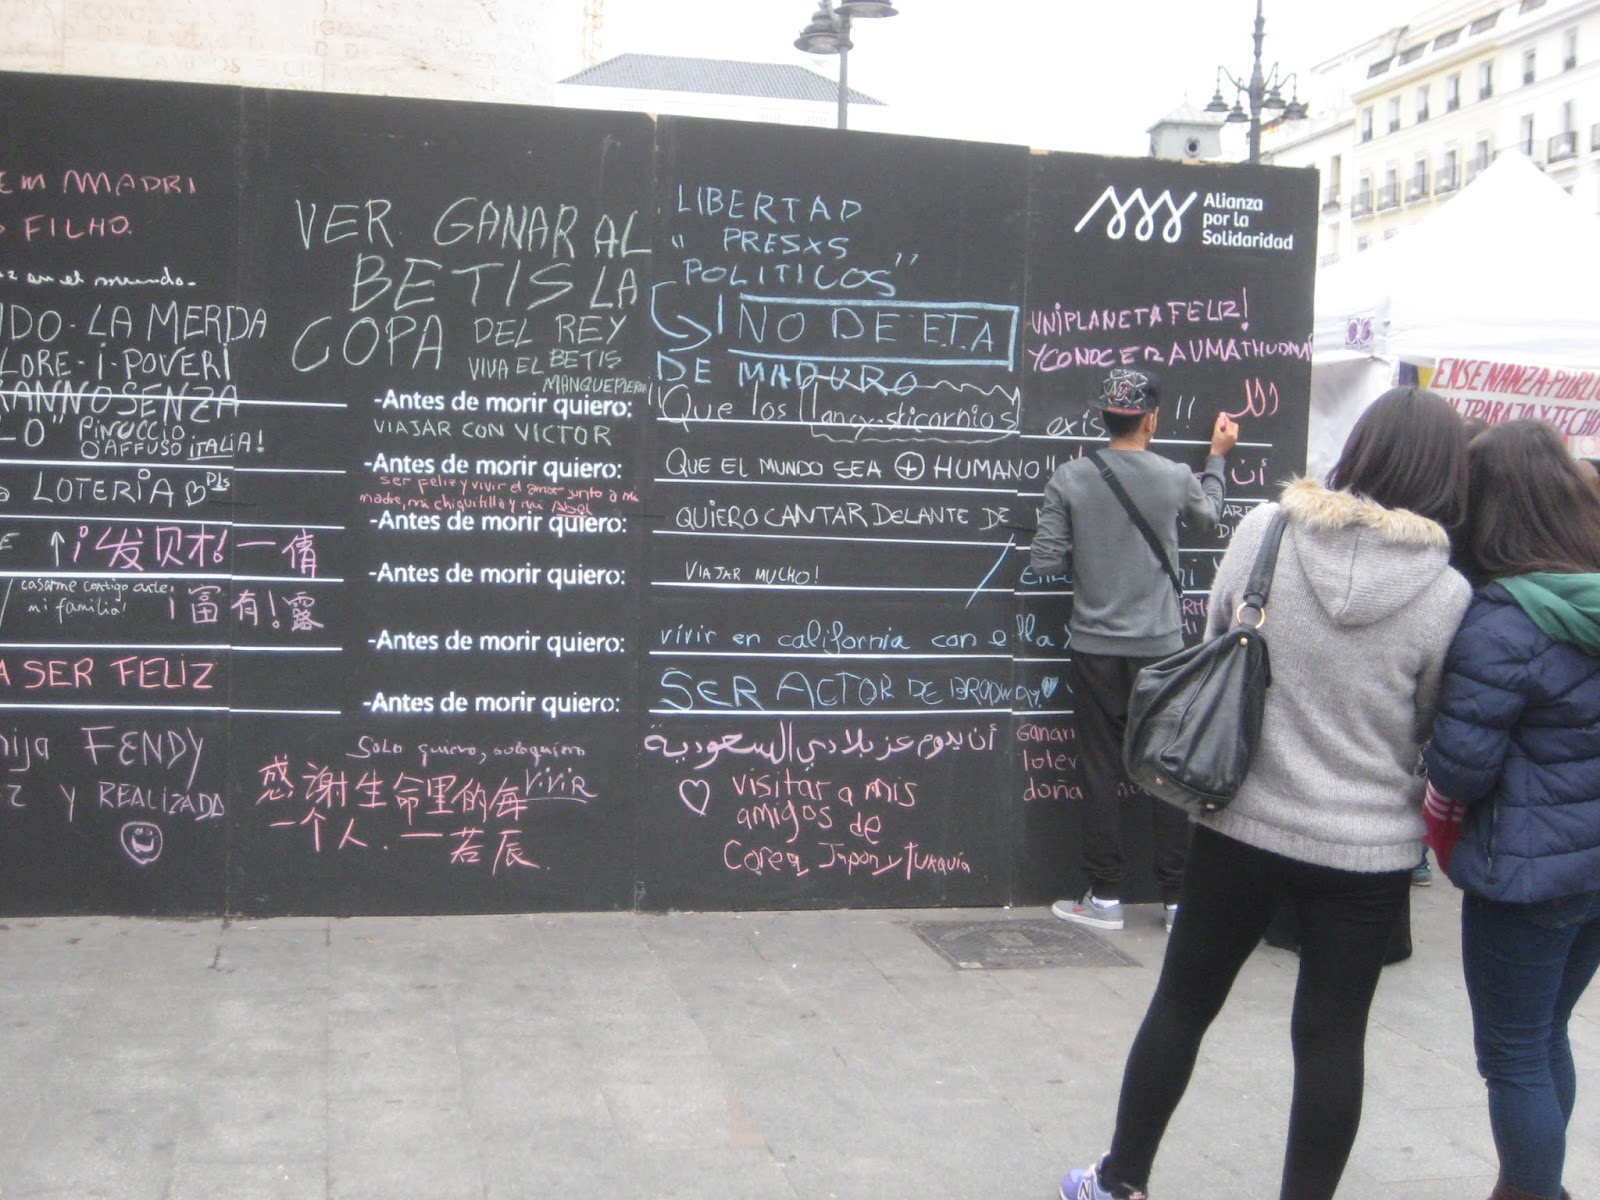 EM MADRI
FILHO.
en el mundo.
LA MERDA
LORE-I-POVERI
SENZA
PINUCCIO
D'AFFUSO ITALIA!
LOTERIA
发财!一倩
casarme contigo ante
mi familia!
富有!露
A SER FELIZ
hija FENDY
Y REALIZADA
VER GANAR AL
BETIS LA
COPA DEL REY
VIVA EL BETIS
MANQUEPIERDA
-Antes de morir quiero:
VIAJAR CON VICTOR
-Antes de morir quiero:
ser feliz y vivir el amor junto a mi
madre, mi chiquitilla y mi Abel
-Antes de morir quiero:
-Antes de morir quiero:
-Antes de morir quiero:
-Antes de morir quiero:
Solo quiero, solo quiero
vivir
感谢生命里的每
一个人. 一若辰
LIBERTAD
"PRESXS
POLITICOS"
NO DE E.T.A
DE MADURO
Que los Lancy-sticornios exis !!
QUE EL MUNDO SEA + HUMANO!!
QUIERO CANTAR DELANTE DE
VIAJAR MUCHO!
vivir en california con ella
SER ACTOR DE BRODWAY
أن يدوم عز بلادي السعودية
♡ visitar a mis
amigos de
Corea, Japon y turkquía
Alianza
por la
Solidaridad
UN PLANETA FELIZ!
Y CONOCER A UMA THURMAN
الل
أن
ganar
loter
doña
ENSEÑANZA PÚBLI
TRABAJO Y TECHO